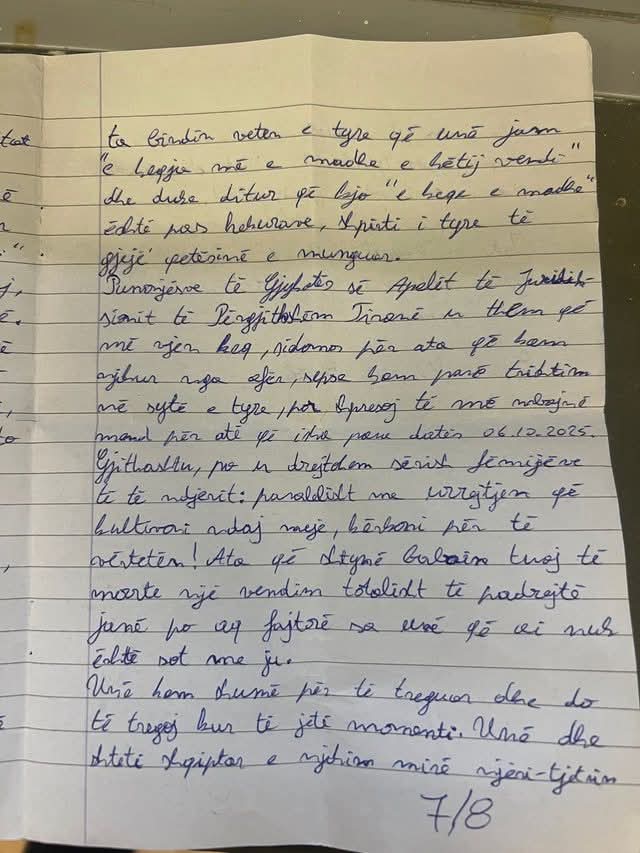 ta bindin veten e tyre që unë jam
"e keqja më e madhe e këtij vendi"
dhe duke ditur që kjo "e keqe e madhe"
është pas hekurave, shpirti i tyre të
gjejë qetësinë e munguar.
Punonjësve të Gjykatës së Apelit të Juridik-
sionit të Përgjithshëm Tiranë u them që
më vjen keq, sidomos për ata që kam
njohur nga afër, sepse kam parë trishtim
në sytë e tyre, por shpresoj të më mbajnë
mend për atë që isha para datës 06.10.2025.
Gjithashtu, po u drejtohem sërish fëmijëve
të të ndjerit: paralelisht me urrejtjen që
kultivoni ndaj meje, kërkoni për të
vërtetën! Ata që shtynë babain tuaj të
marrë një vendim totalisht të padrejtë
janë po aq fajtorë sa unë që ai nuk
është sot me ju.
Unë kam shumë për të treguar dhe do
të tregoj kur të jetë momenti. Unë dhe
shteti shqiptar e njohim mirë njëri-tjetrin
7/8
tat
ë
"
j,
ë.
ë
,
to
,
ë